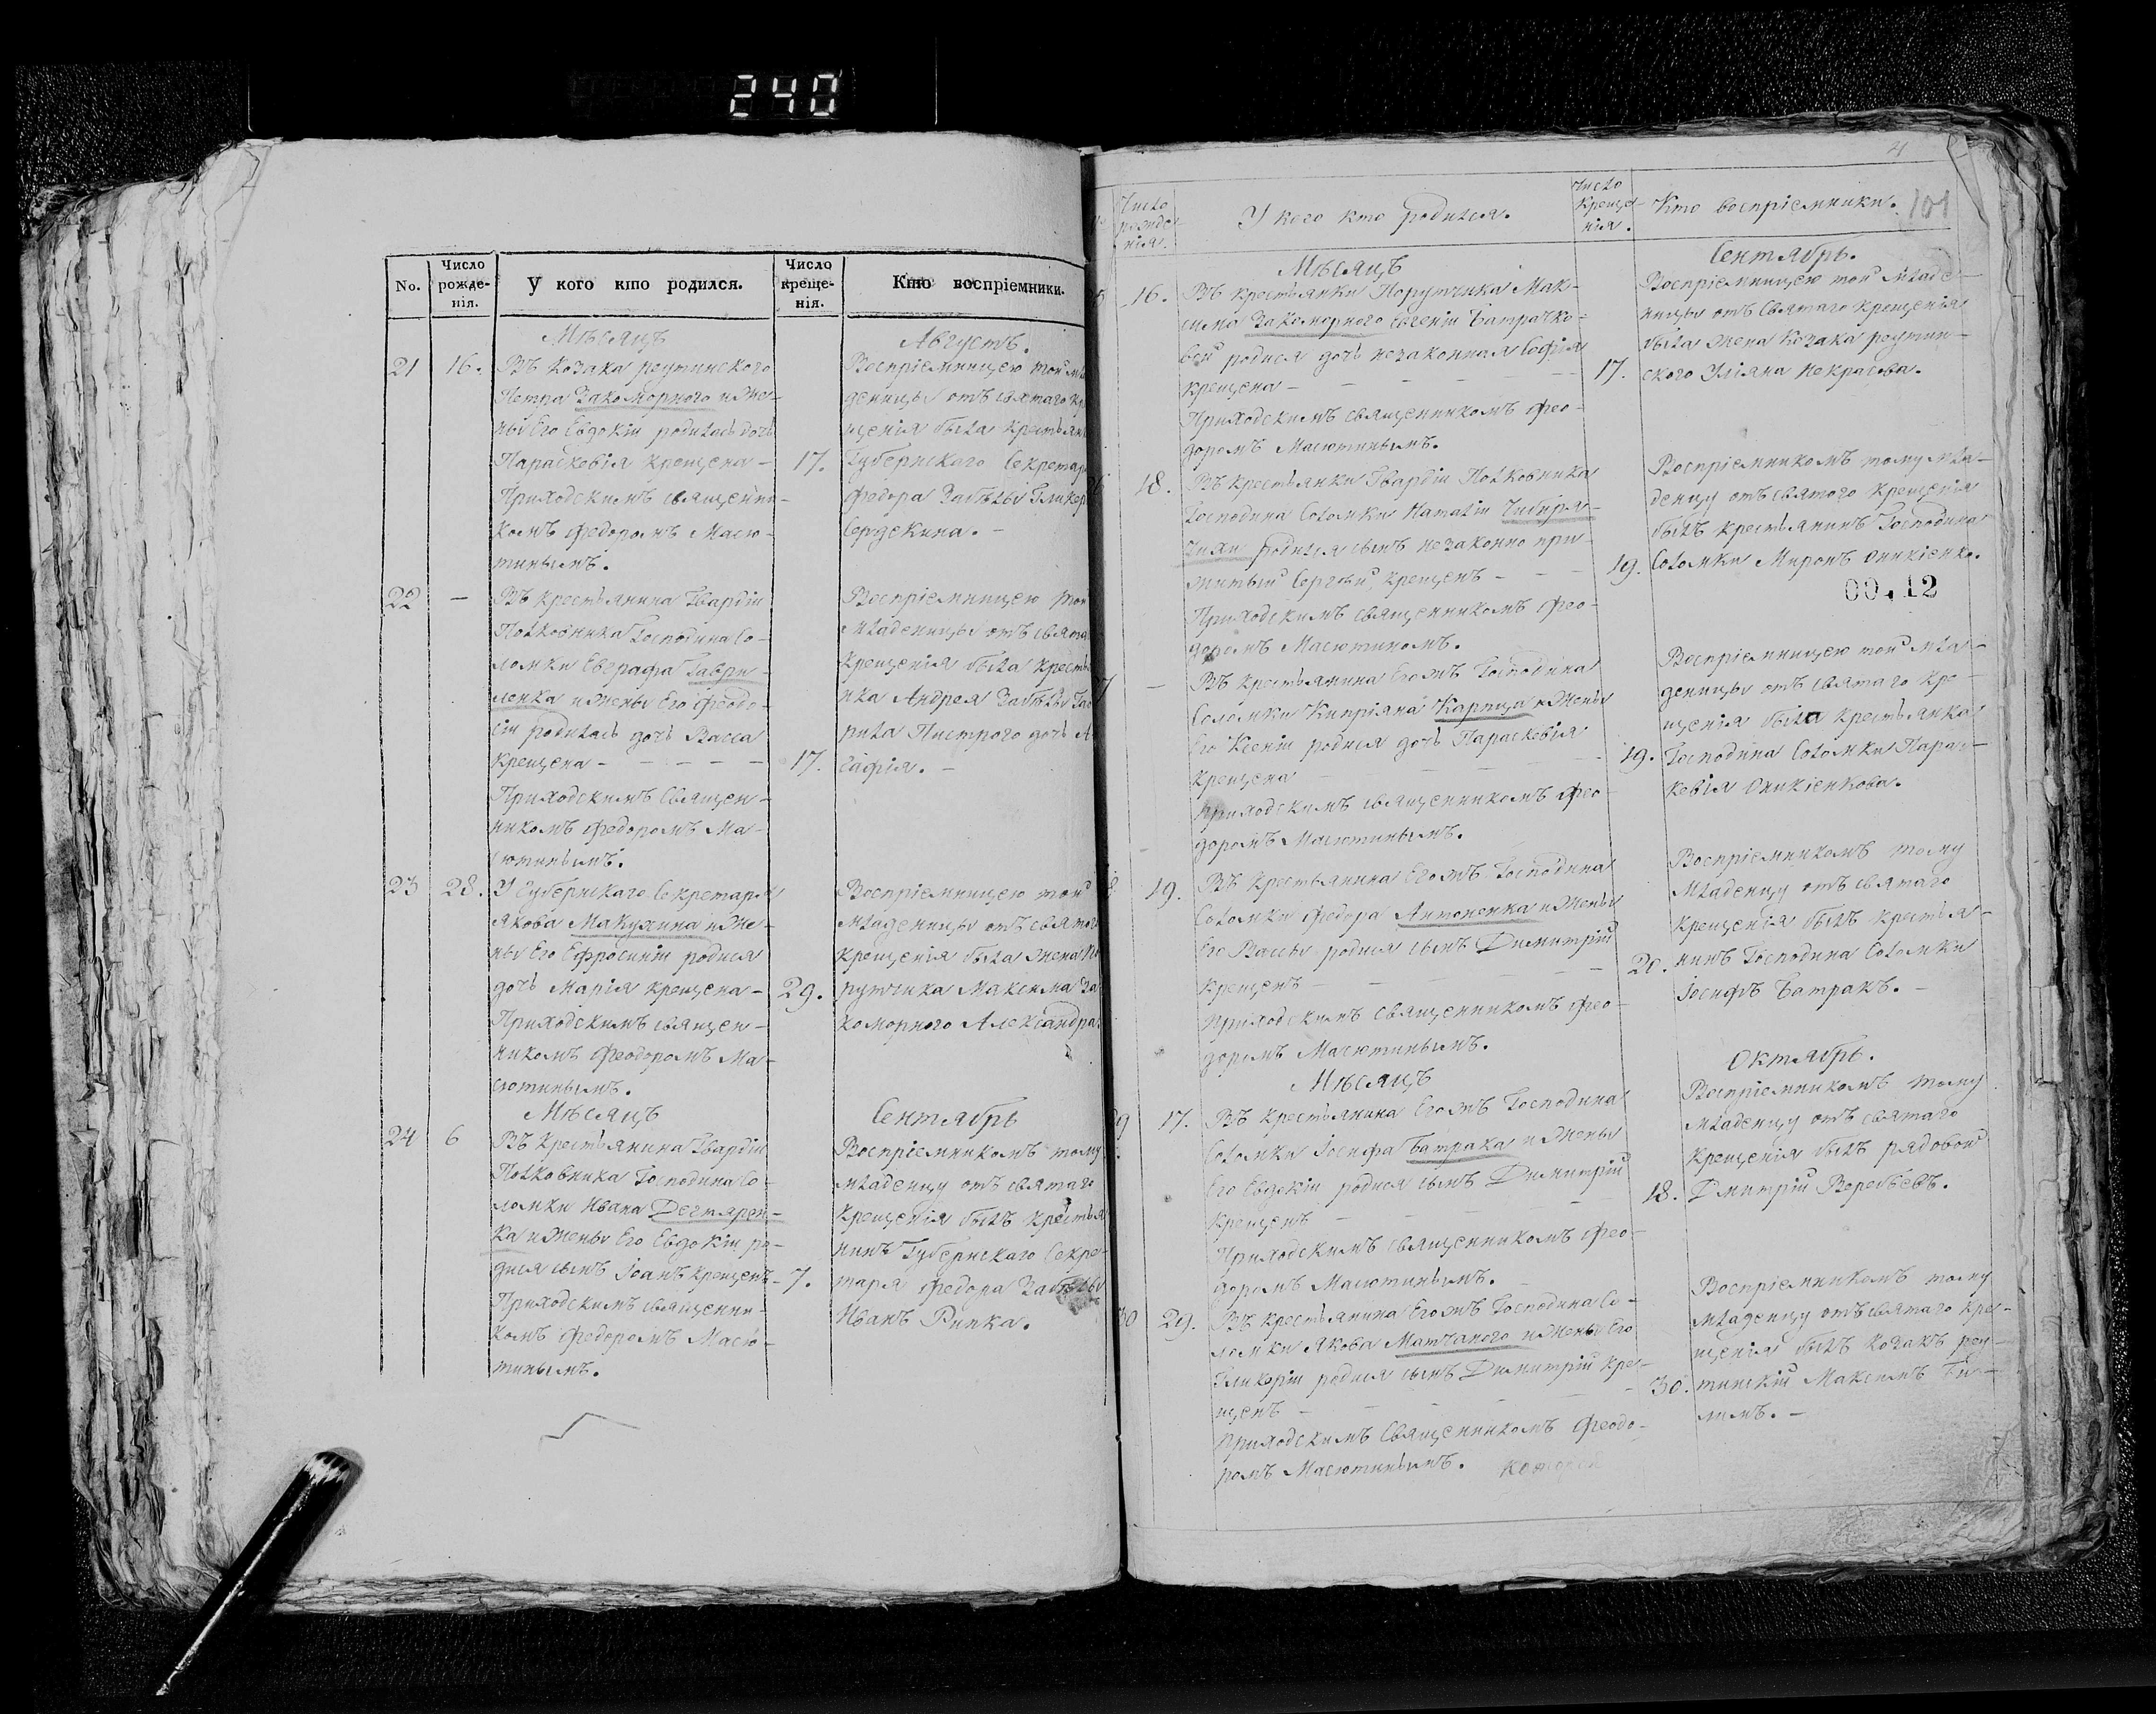 240
No.
Число рожде-нія.
У кого кто родился.
Число креще-нія.
Кто воспріемники.
Мѣсяцъ
Августъ.
21
16.
Въ козака реутинского
Петра Закоморного и же-
ны Его Евдокіи родилась дочь
Параскевія крещена –
Приходскимъ священни-
комъ Федоромъ Масю-
тинымъ.
17.
Воспріемницею той мла
деницы отъ святаго кр
щенія была крестьян
Губернского Секретар
Федора Забѣлы Гликер
Сердекина. –
22
–
Въ крестьянина Гвардіи
Полковника Господина Со-
ломки Евграфа Гаври-
ленка и жены Его Феодо-
сіи родилась дочь Васса
крещена – – – – –
Приходскимъ Священ-
никомъ Федоромъ Ма-
сютинымъ.
17.
Воспріемницею той
младеницы отъ свята
крещенія была кресть
нка Андрея Забѣлы Гав
рила Пистрого дочь А
гафія. –
23
28.
У Губернскаго Секретаря
Якова Макухина и же-
ны Его Ефросиніи родися
дочь Марія крещена –
Приходскимъ священ-
никомъ Феодоромъ Ма-
сютинымъ.
29.
Воспріемницею той
младеницы отъ святого
крещенія была жена По
рутчика Максима За
коморного Александра
Мѣсяцъ
Сентябрь
24
6
Въ крестьянина Гвардіи
Полковника Господина Со-
ломки Ивана Дегтярен-
ка и жены Его Евдокіи ро-
дися сынъ Іоанъ крещенъ –
Приходскимъ священни-
комъ Федоромъ Масю-
тинымъ.
7.
Воспріемникомъ тому
младенцу отъ святаго
крещенія былъ крестья
нинъ Губернскаго Секре-
таря Федора Забѣлы
Иванъ Рипка.
4
101
Число рожде-нія.
У кого кто родился.
Число Креще-нія.
Кто воспріемники.
Мѣсяцъ
Сентябрь.
16.
Въ крестьянки Порутчика Мак-
сима Закоморного Евгеніи Батрачко-
вой родися дочь незаконная Софія
крещена – – – – – –
Приходскимъ священникомъ Фео-
доромъ Масютинымъ.
17.
Воспріемницею той младе-
ницы отъ Святаго крещенія
была жена козака реутин-
ского Уліяна Некрасова.
18.
Въ крестьянки Гвардіи Полковника
Господина Соломки Наталіи Чибиря-
чихи родися сынъ незаконно при-
житый Сергѣй, крещенъ – – –
Приходскимъ священникомъ Фео-
доромъ Масютиномъ.
19.
Воспріемникомъ тому мла-
денцу отъ святого крещенія
былъ крестьянинъ Господина
Соломки Миронъ Оникіенко.
00.12
7
–
Въ крестьянина Егожъ Господина
Соломки Кипріяна Карпца и жены
Его Ксеніи родися дочь Параскевія
крещена – – – –
Приходскимъ священникомъ Фео-
доромъ Масютинымъ.
19.
Воспріемницею той мла-
деницы отъ святаго кре-
щенія была крестьянка
Господина Соломки Парас-
кевія Оникіенкова.
8
19.
Въ крестьянина Егожъ Господина
Соломки Федора Антоненка и жены
Его Вассы родися сынъ Димитрій
крещенъ – – – –
Приходскимъ священникомъ Фео-
доромъ Масютинымъ.
20.
Воспріемникомъ тому
младенцу отъ святаго
крещенія былъ крестья-
нинъ Господина Соломки
Іосифъ Батракъ. –
Мѣсяцъ
Октябрь.
9
17.
Въ крестьянина Егожъ Господина
Соломки Іосифа Батрака и жены
Его Евдокіи родися сынъ Димитрій
крещенъ – – – –
Приходскимъ священникомъ Фео-
доромъ Масютинымъ.
18.
Воспріемникомъ тому
младенцу отъ святаго
крещенія былъ рядовой
Дмитрій Воребьевъ.
30
29.
Въ крестьянина Егожъ Господина Со-
ломки Якова Матчаного и жены Его
Гликеріи родися сынъ Димитрій кре-
щенъ – – – –
Приходскимъ Священникомъ Феодо-
ромъ Масютинымъ.
30.
Воспріемникомъ тому
младенцу отъ святаго кре-
щенія былъ козакъ реу-
тинскій Максимъ Би-
лимъ. –